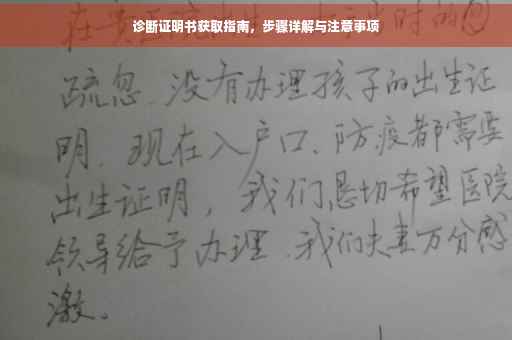 诊断证明书获取指南，步骤详解与注意事项
时的
疏忽、没有办理孩子的出生证
明、现在入户口、防疫都需要
出生证明，我们恳切希望医院
领导给予办理、我们夫妻万分感
激。